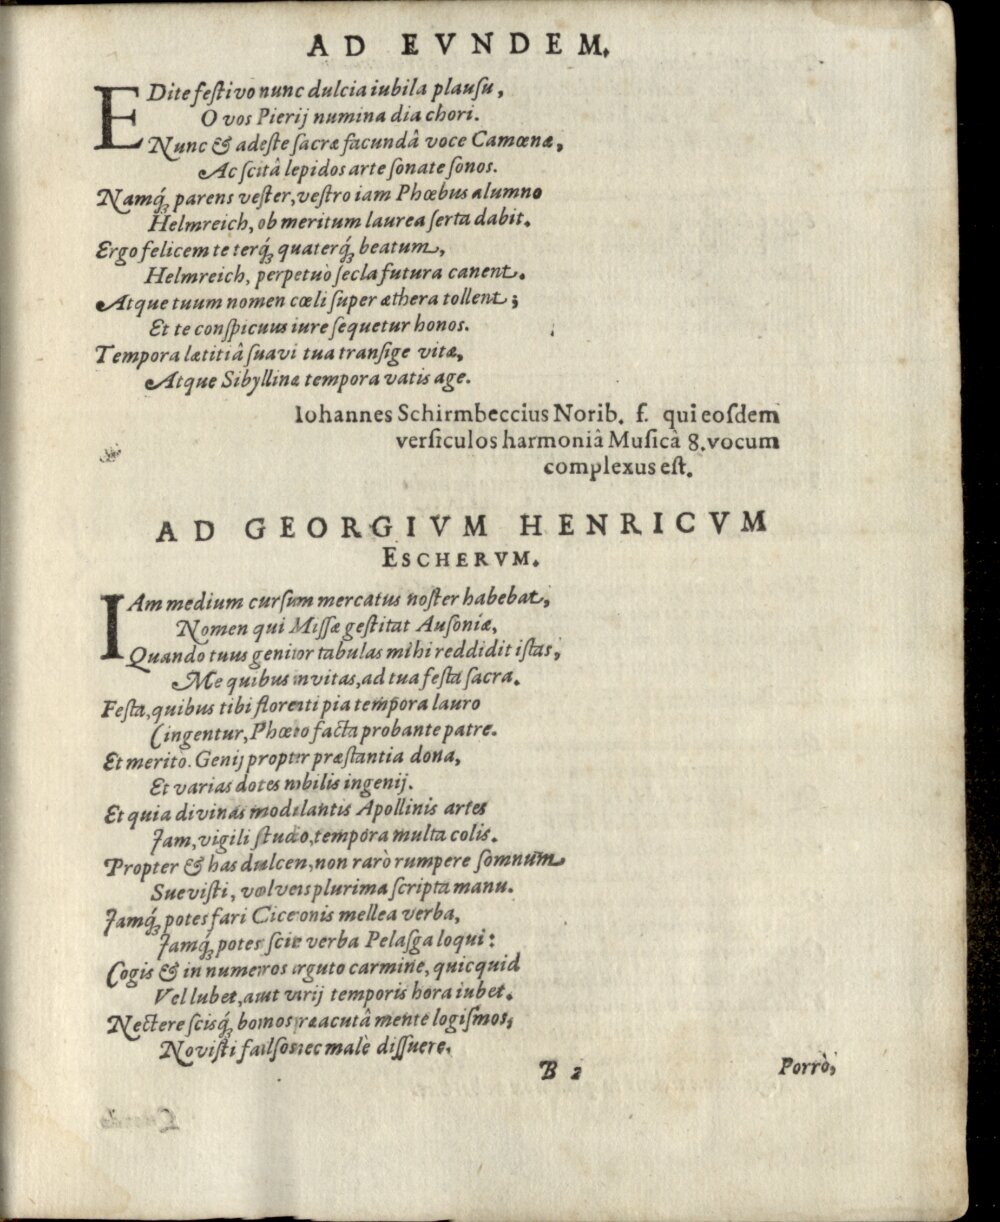 AD EVNDEM.
EDite festivo nunc dulcia iubila plausu,
O vos Pierij numina dia chori.
Nunc & adeste sacræ facundâ voce Camœnæ,
Ac scitâ lepidos arte sonate sonos.
Namq́; parens vester, vestro iam Phœbus alumno
Helmreich, ob meritum laurea serta dabit.
Ergo felicem te terq́; quaterq́; beatum,
Helmreich, perpetuò secla futura canent.
Atque tuum nomen cœli super æthera tollent;
Et te conspicuus iure sequetur honos.
Tempora lætitiâ suavi tua transige vitæ,
Atque Sibyllinæ tempora vatis age.
Iohannes Schirmbeccius Norib. f. qui eosdem
versiculos harmoniâ Musicâ 8. vocum
complexus est.
AD GEORGIVM HENRICVM
ESCHERVM.
IAm medium cursum mercatus noster habebat,
Nomen qui Missæ gestitat Ausoniæ,
Quando tuus genitor tabulas mihi reddidit istas,
Me quibus invitas, ad tua festa sacra.
Festa, quibus tibi florenti pia tempora lauro
Cingentur, Phœbo facta probante patre.
Et merito. Genij propter præstantia dona,
Et varias dotes nobilis ingenij.
Et quia divinas modulantis Apollinis artes
Jam, vigili studio, tempora multa colis.
Propter & has dulcem, non rarò rumpere somnum
Suevisti, volvens plurima scripta manu.
Jamq́; potes fari Ciceronis mellea verba,
Jamq́; potes scite verba Pelasga loqui:
Cogis & in numeros arguto carmine, quicquid
Vel lubet, aut varij temporis hora iubet.
Nectere scisq́; bonos præacutâ mente logismos,
Novisti falsos nec malè dissuere.
B 2
Porrò,